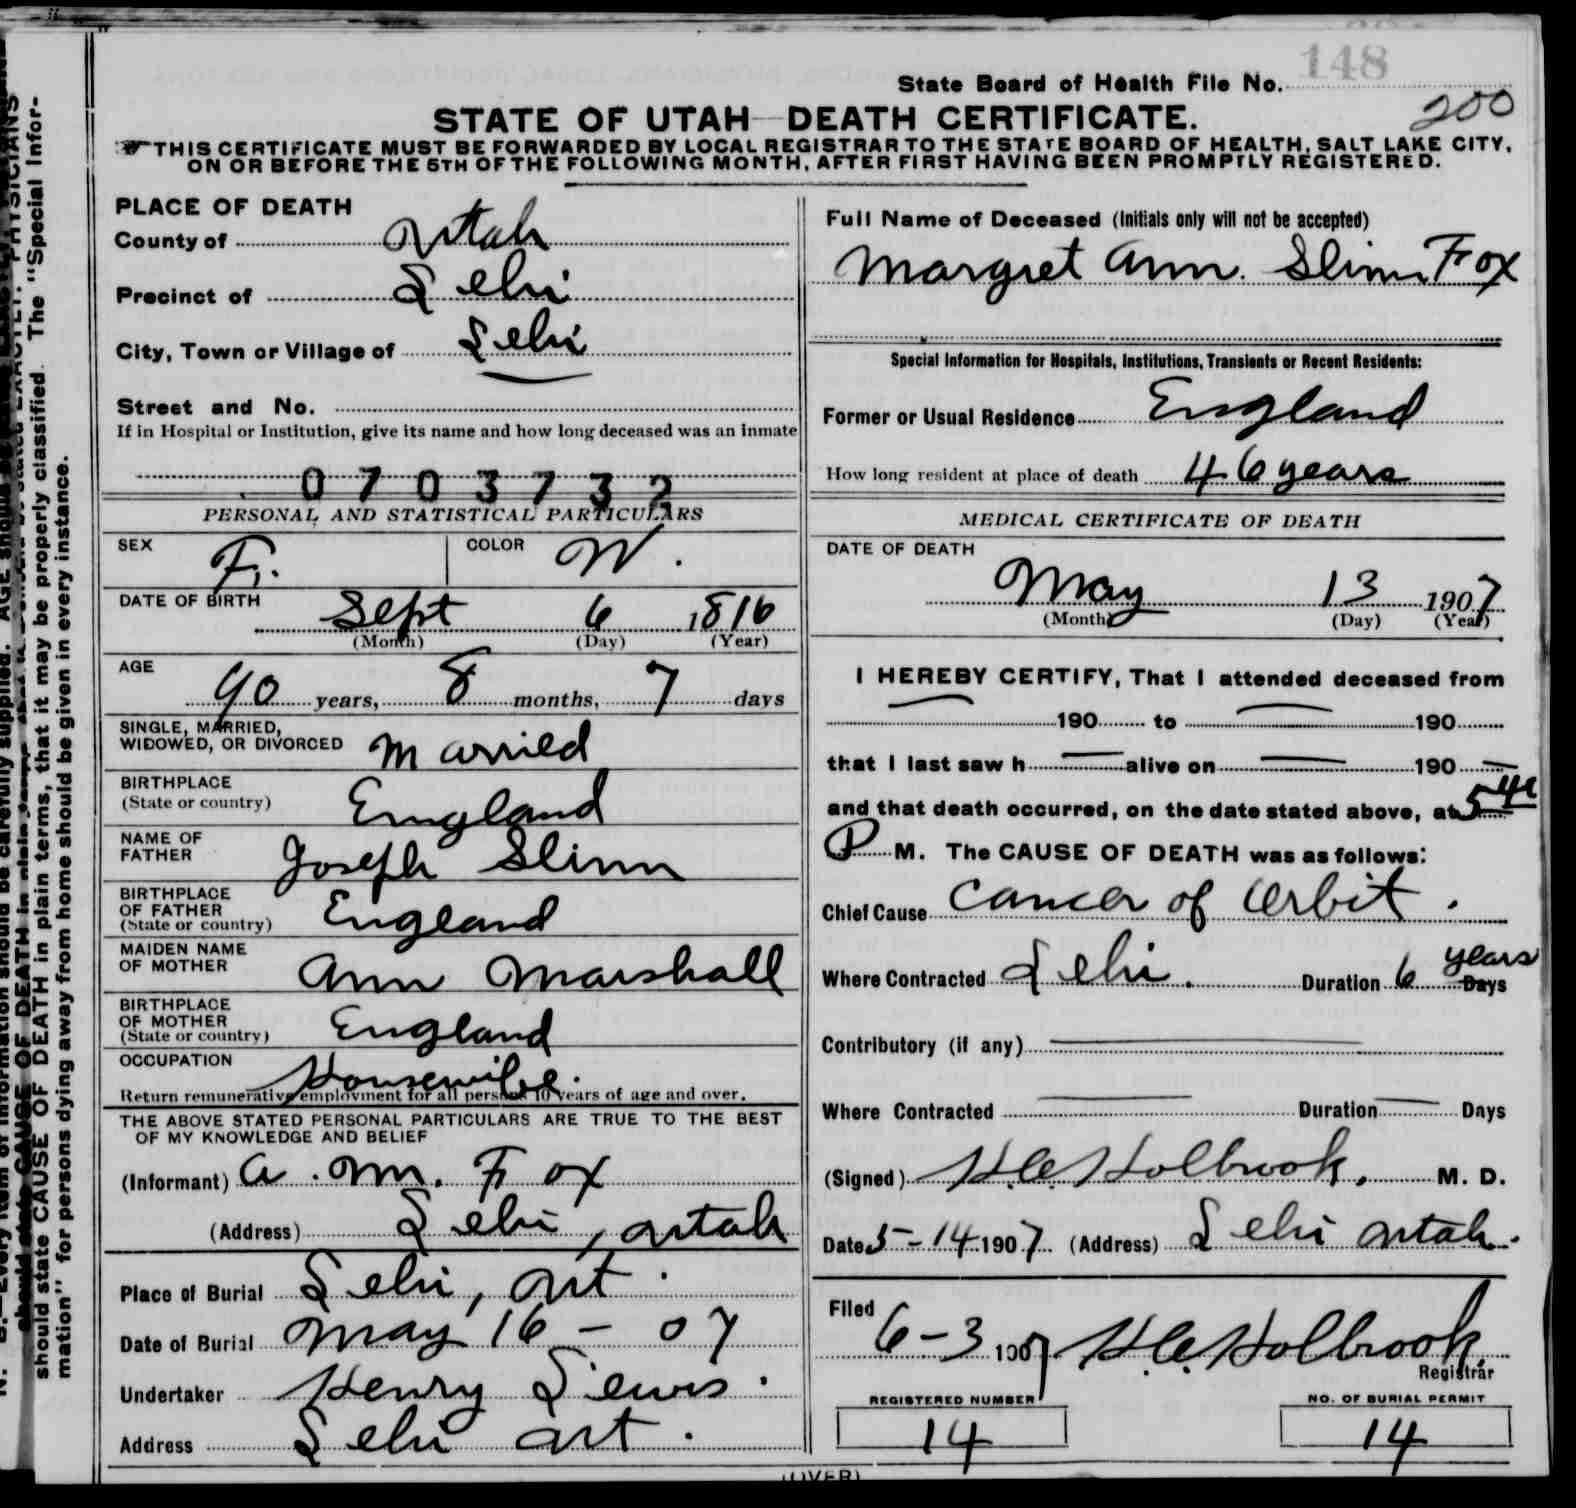 148
State Board of Health File No.
200
STATE OF UTAH—DEATH CERTIFICATE.
THIS CERTIFICATE MUST BE FORWARDED BY LOCAL REGISTRAR TO THE STATE BOARD OF HEALTH, SALT LAKE CITY,
ON OR BEFORE THE 5TH OF THE FOLLOWING MONTH, AFTER FIRST HAVING BEEN PROMPTLY REGISTERED.
PLACE OF DEATH
County of Utah
Precinct of Lehi
City, Town or Village of Lehi
Street and No.
If in Hospital or Institution, give its name and how long deceased was an inmate
0703732
PERSONAL AND STATISTICAL PARTICULARS
SEX F. COLOR W.
DATE OF BIRTH Sept 6 1816
(Month) (Day) (Year)
AGE 90 years, 8 months, 7 days
SINGLE, MARRIED,
WIDOWED, OR DIVORCED Married
BIRTHPLACE
(State or country) England
NAME OF
FATHER Joseph Slinn
BIRTHPLACE
OF FATHER
(State or country) England
MAIDEN NAME
OF MOTHER Ann Marshall
BIRTHPLACE
OF MOTHER
(State or country) England
OCCUPATION Housewife.
Return remunerative employment for all persons 10 years of age and over.
THE ABOVE STATED PERSONAL PARTICULARS ARE TRUE TO THE BEST
OF MY KNOWLEDGE AND BELIEF
(Informant) A. M. Fox
(Address) Lehi, Utah
Place of Burial Lehi, Ut.
Date of Burial May 16 - 07
Undertaker Henry Lewis.
Address Lehi Ut.
Full Name of Deceased (Initials only will not be accepted)
Margret Ann. Slinn Fox
Special Information for Hospitals, Institutions, Transients or Recent Residents:
Former or Usual Residence England
How long resident at place of death 46 years
MEDICAL CERTIFICATE OF DEATH
DATE OF DEATH
May 13 1907
(Month) (Day) (Year)
I HEREBY CERTIFY, That I attended deceased from
— 190 to — 190
that I last saw h — alive on — 190 —
and that death occurred, on the date stated above, at 5
P M. The CAUSE OF DEATH was as follows:
Chief Cause Cancer of Orbit.
Where Contracted Lehi. Duration 6 years Days
Contributory (if any) —
Where Contracted — Duration — Days
(Signed) Holbrook, M. D.
Date 5-14 1907 (Address) Lehi Utah.
Filed 6-3 1907 Holbrook
Registrar
REGISTERED NUMBER NO. OF BURIAL PERMIT
14 14
(OVER)
should state CAUSE OF DEATH in plain terms, that it may be properly classified. The "Special Infor-
mation" for persons dying away from home should be given in every instance.